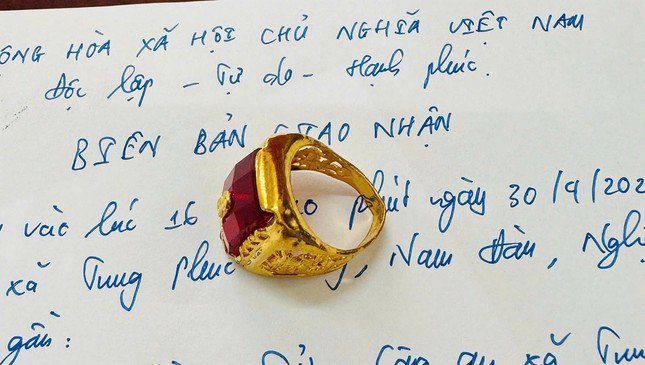 ỘNG HÒA XÃ HỘI CHỦ NGHĨA VIỆT NAM
Độc lập - Tự do - Hạnh phúc.
BIÊN BẢN GIAO NHẬN
vào lúc 16 phút ngày 30/9/202
xã Trung phúc Nam Đàn, Nghệ
gồm:
Công an xã Trung